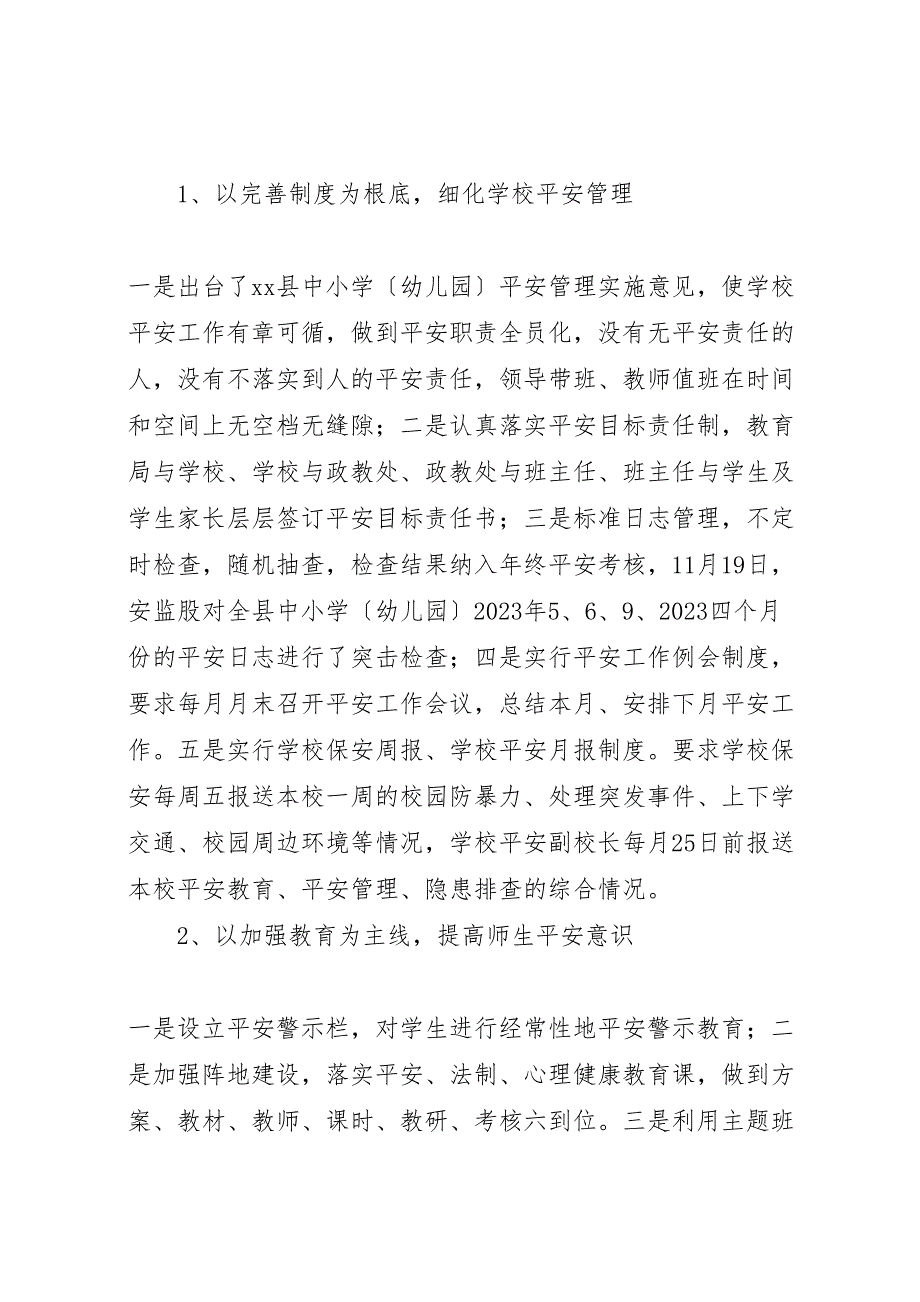 1、以完善制度为根底，细化学校平安管理
一是出台了xx县中小学〔幼儿园〕平安管理实施意见，使学校
平安工作有章可循，做到平安职责全员化，没有无平安责任的
人，没有不落实到人的平安责任，领导带班、教师值班在时间
和空间上无空档无缝隙；二是认真落实平安目标责任制，教育
局与学校、学校与政教处、政教处与班主任、班主任与学生及
学生家长层层签订平安目标责任书；三是标准日志管理，不定
时检查，随机抽查，检查结果纳入年终平安考核，11月19日，
安监股对全县中小学〔幼儿园〕2023年5、6、9、2023四个月
份的平安日志进行了突击检查；四是实行平安工作例会制度，
要求每月月末召开平安工作会议，总结本月、安排下月平安工
作。五是实行学校保安周报、学校平安月报制度。要求学校保
安每周五报送本校一周的校园防暴力、处理突发事件、上下学
交通、校园周边环境等情况，学校平安副校长每月25日前报送
本校平安教育、平安管理、隐患排查的综合情况。
2、以加强教育为主线，提高师生平安意识
一是设立平安警示栏，对学生进行经常性地平安警示教育；二
是加强阵地建设，落实平安、法制、心理健康教育课，做到方
案、教材、教师、课时、教研、考核六到位。三是利用主题班